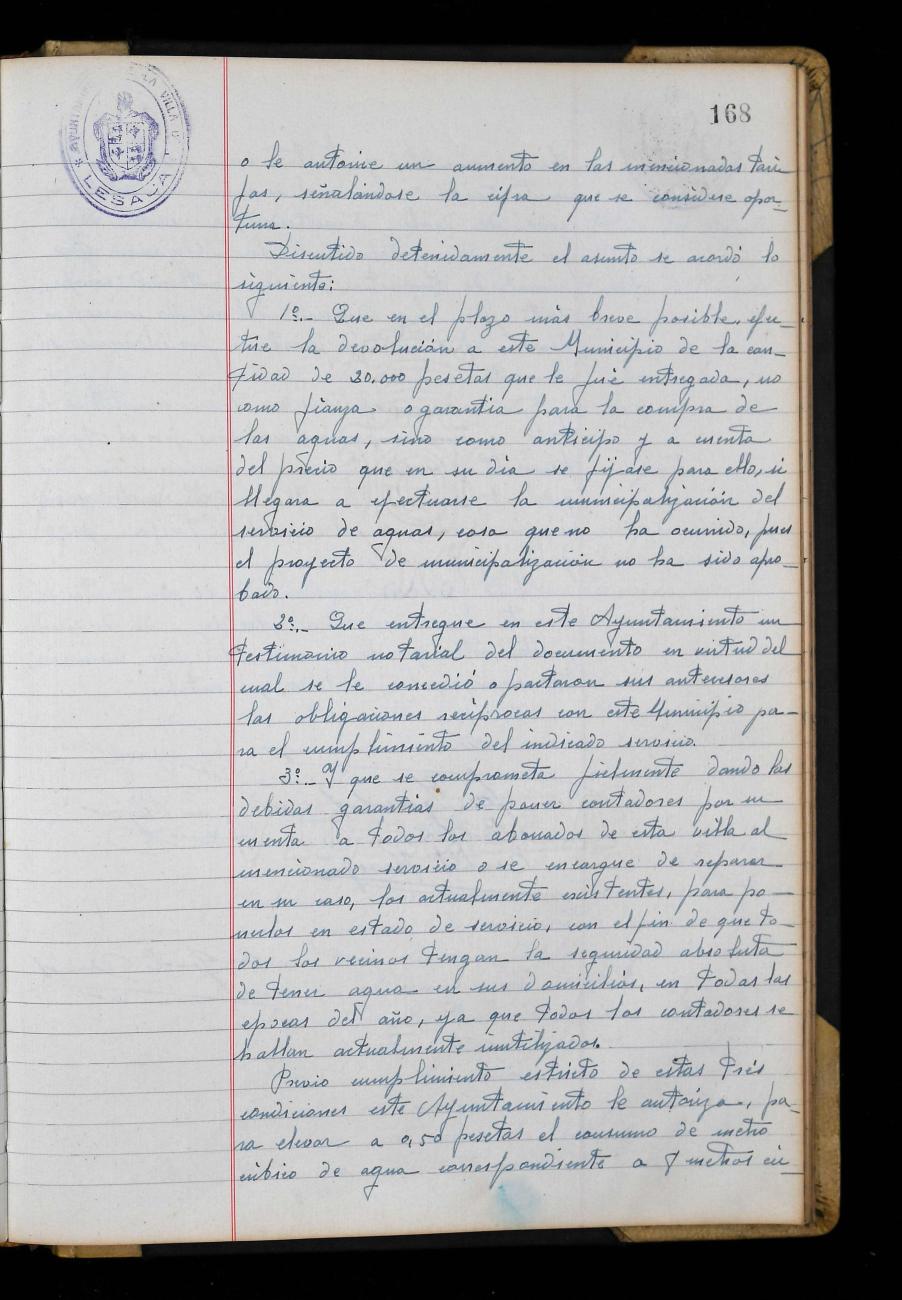 168
AYUNTAMIENTO LA VILLA D
LESACA
o le autorice un aumento en las mencionadas tari
fas, señalándose la cifra que se considere opor-
tuna.
Discutido detenidamente el asunto se acordó lo
siguiente:
1º.- Que en el plazo más breve posible, efec-
túe la devolución a este Municipio de la can-
tidad de 20.000 pesetas que le fué entregada, no
como fianza o garantía para la compra de
las aguas, sino como anticipo y a cuenta
del precio que en su dia se fijase para ello, si
llegara a efectuarse la municipalización del
servicio de aguas, cosa que no ha ocurrido, pues
el proyecto de municipalización no ha sido apro-
bado.
2º.- Que entregue en este Ayuntamiento un
testimonio notarial del documento en virtud del
cual se le concedió o pactaron sus antecesores
las obligaciones recíprocas con este Municipio pa-
ra el cumplimiento del indicado servicio.
3º.- Y que se comprometa fielmente dando las
debidas garantías de poner contadores por su
cuenta a todos los abonados de esta villa al
mencionado servicio o se encargue de reparar
en su caso, los actualmente existentes, para po-
nerlos en estado de servicio, con el fin de que to-
dos los vecinos tengan la seguridad absoluta
de tener agua en sus domicilios, en todas las
epocas del año, ya que todos los contadores se
hallan actualmente inutilizados.
Previo cumplimiento estricto de estas tres
condiciones este Ayuntamiento le autoriza, pa-
ra elevar a 0,50 pesetas el consumo de metro
cúbico de agua correspondiente a 7 metros cú-